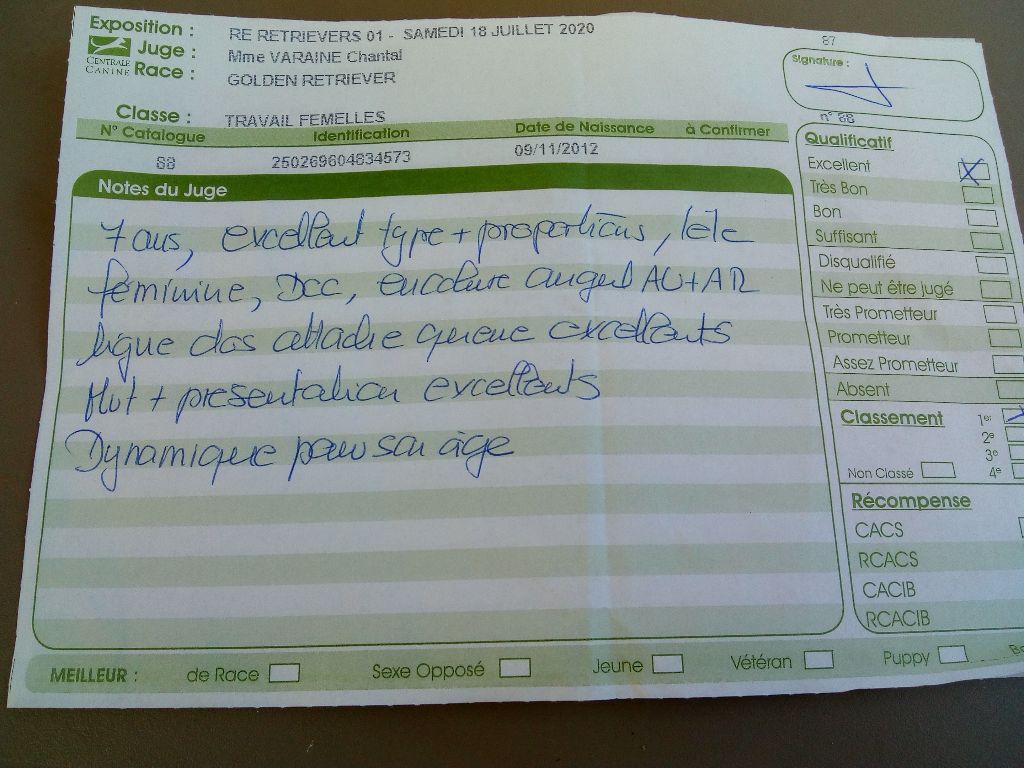 Exposition : RE RETRIEVERS 01 - SAMEDI 18 JUILLET 2020
Juge : Mme VARAINE Chantal
CENTRALE CANINE
Race : GOLDEN RETRIEVER
Classe : TRAVAIL FEMELLES
N° Catalogue Identification Date de Naissance à Confirmer
88 250269604834573 09/11/2012
Notes du Juge
7 ans, excellent type + proportions, tête
féminine, DCC, encolure angul AV + AR
ligne dos attache queue excellents
Mvt + présentation excellents
Dynamique pour son âge
87
Signature :
n° 88
Qualificatif
Excellent
Très Bon
Bon
Suffisant
Disqualifié
Ne peut être jugé
Très Prometteur
Prometteur
Assez Prometteur
Absent
Classement 1er
2e
3e
Non Classé 4e
Récompense
CACS
RCACS
CACIB
RCACIB
MEILLEUR : de Race Sexe Opposé Jeune Vétéran Puppy